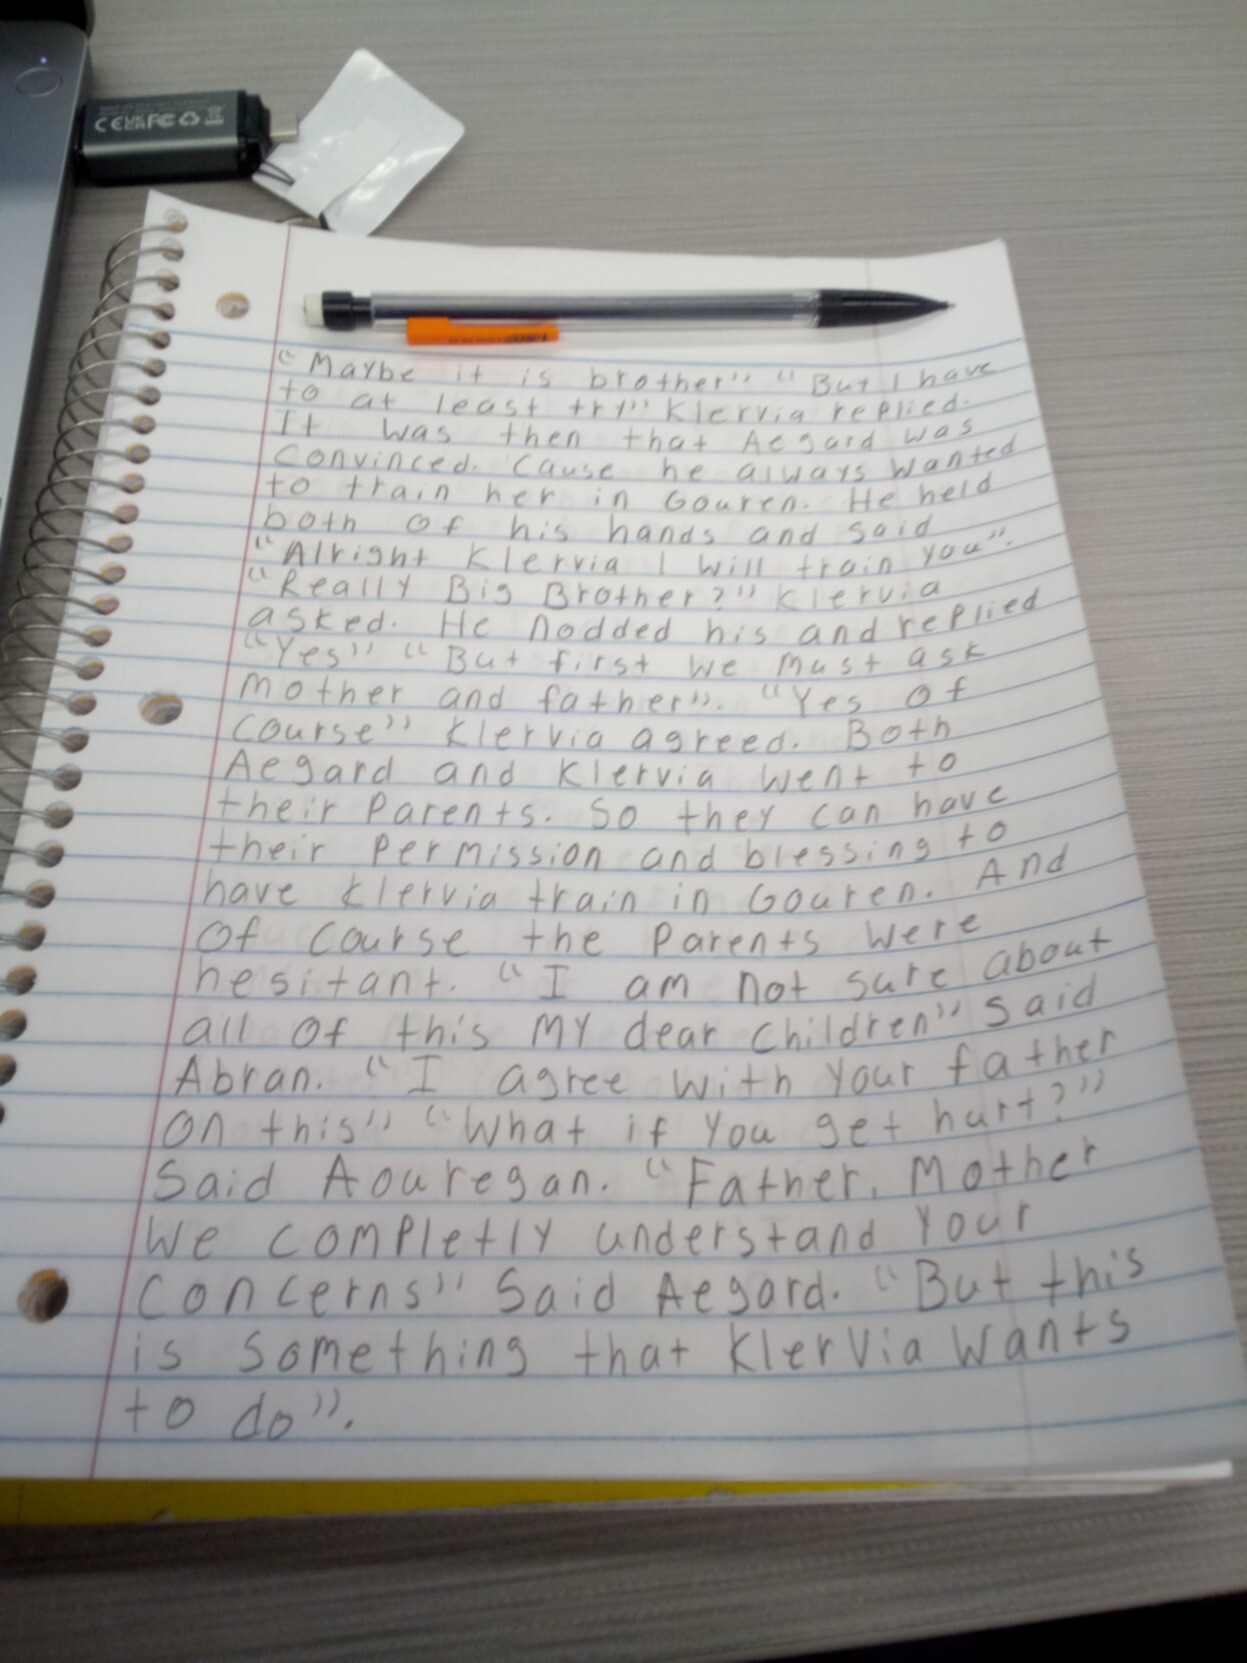 CE UKCA FC
"Maybe it is brother" "But I have
to at least try" Klervia replied.
It was then that Aegard was
Convinced. Cause he always wanted
to train her in Gouren. He held
both of his hands and said
"Alright Klervia I will train you".
"Really Big Brother?" Klervia
asked. He nodded his and replied
"Yes" "But first we must ask
Mother and father". "Yes of
course" Klervia agreed. Both
Aegard and Klervia went to
their Parents. So they can have
their Permission and blessing to
have Klervia train in Gouren. And
Of course the Parents were
hesitant. "I am not sure about
all of this my dear children" said
Abran. "I agree with your father
on this" "What if you get hurt?"
Said Aouregan. "Father, Mother
We completly understand your
concerns" Said Aegard. "But this
is something that Klervia wants
to do".